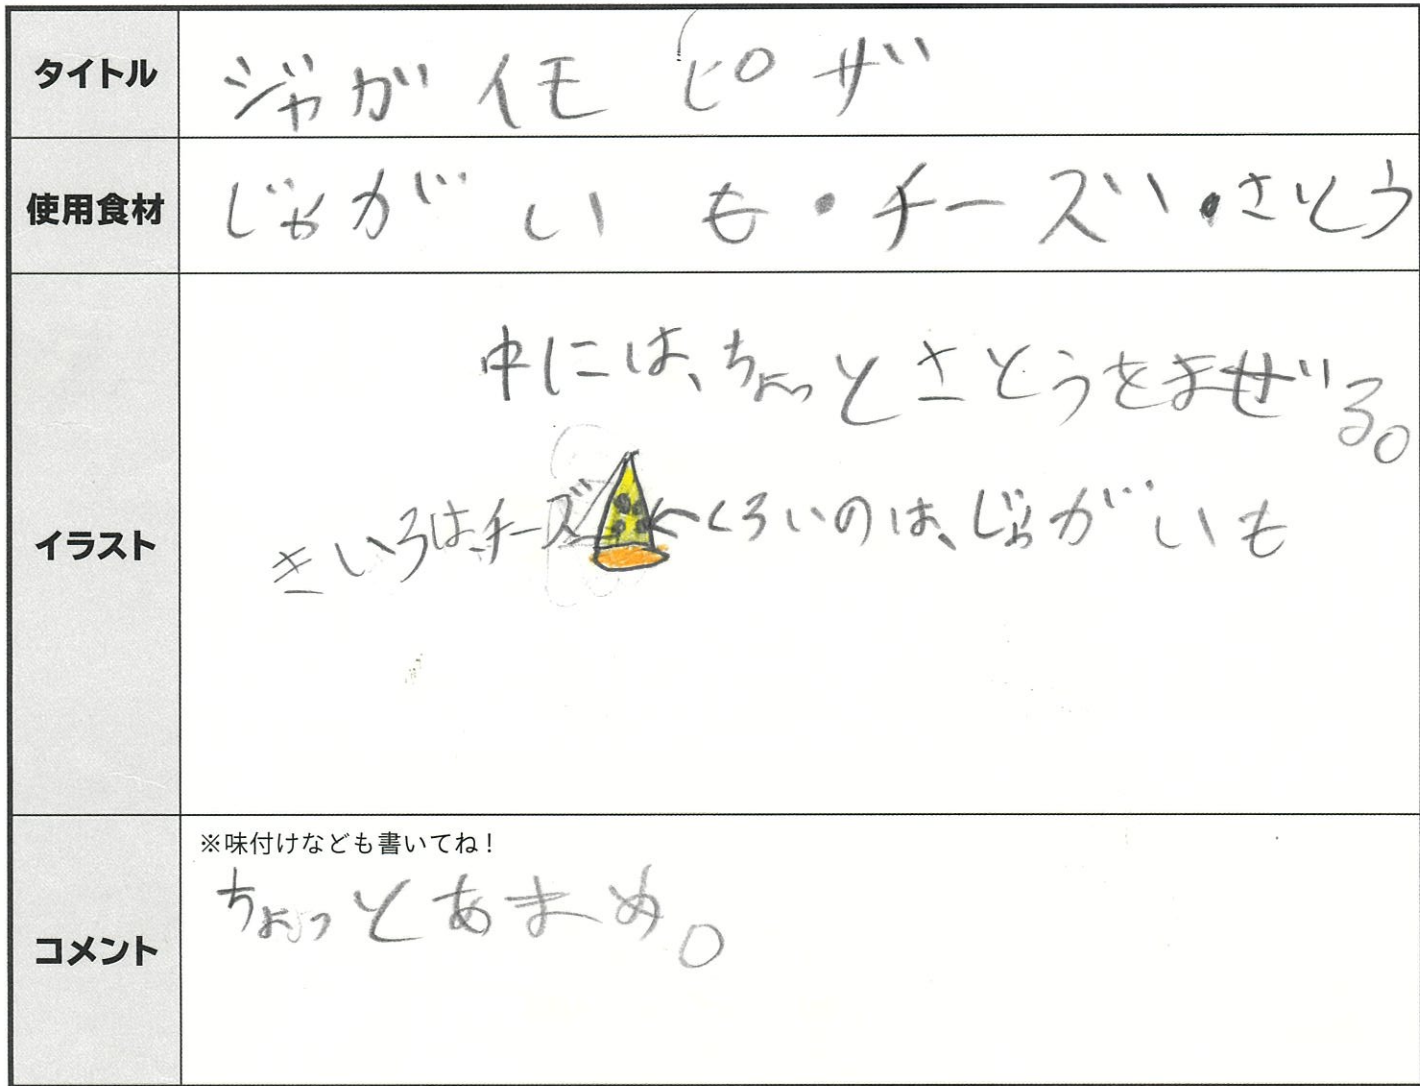 タイトル
ジャガイモピザ
使用食材
じゃがいも・チーズ・さとう
イラスト
中には、ちょっとさとうをまぜる。
きいろは、チーズ
←くろいのは、じゃがいも
コメント
※味付けなども書いてね！
ちょっとあまめ。